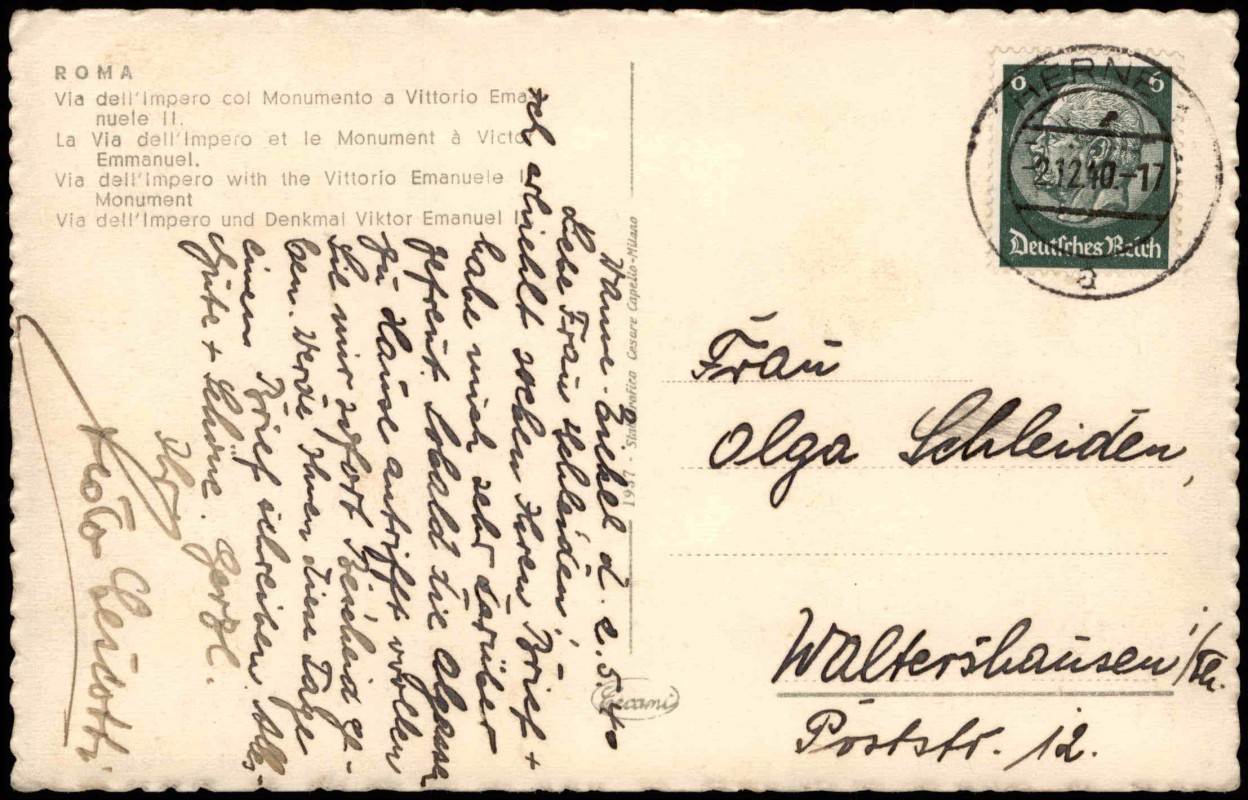 ROMA
Via dell'Impero col Monumento a Vittorio Ema-
nuele II.
La Via dell'Impero et le Monument à Victo
Emmanuel.
Via dell'Impero with the Vittorio Emanuele I
Monument
Via dell'Impero und Denkmal Viktor Emanuel I
1937 - Cesare Capello-Milano
Wanne-Eickel d.
Liebe Frau Schleiden!
Ich erhielt soeben Ihren Brief +
habe mich sehr darüber
gefreut. Sobald die
zu Hause antrifft wollen
Sie mir sofort Bescheid ge-
ben. Werde Ihnen diese Tage
einen Brief schreiben. Alles
Gute + Schöne. Herzl.
Ihr
6 6
HERNE
-2.12.40.-17
a
Deutsches Reich
Frau
Olga Schleiden,
Waltershausen/Th.
Poststr. 12.